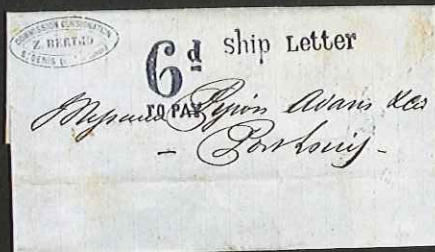 COMMISSION CONSIGNATION
Z. BERTHO
St DENIS
6d Ship Letter
TO PAY
Messieurs Pipon Adam &Co
Port Louis